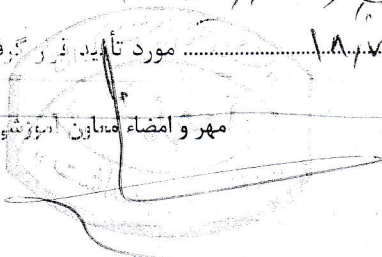 ۱۸,۷ .................... مورد تأیید قرار گرفت
مهر و امضاء معاون آموزشی